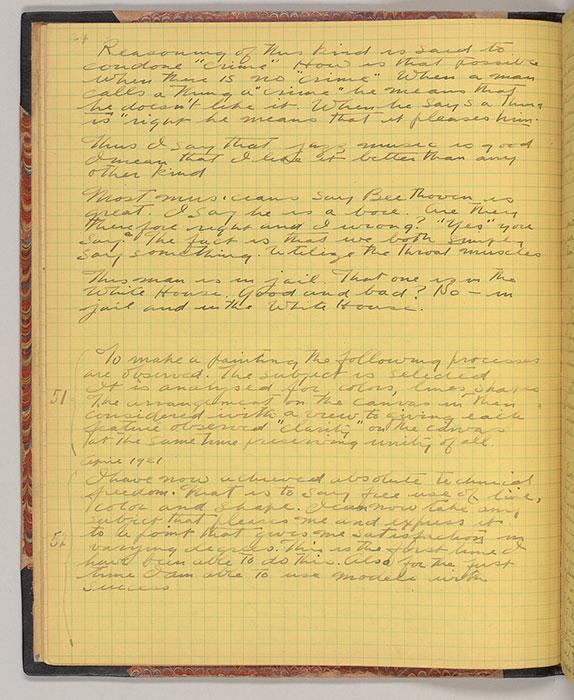 Reasoning of this kind is said to
condone "crime". How is that possible
when there is no "crime" When a man
calls a thing a "crime" he means that
he doesn't like it. When he says a thing
is "right he means that it pleases him.
Thus I say that jazz music is good
I mean that I like it better than any
other kind
Most musicians say Beethoven is
great. I say he is a bore. Are they
therefore right and I wrong? "Yes" you
say. The fact is that we both simply
say something. Utilize the throat muscles
This man is in jail. That one is in the
White House. Good and bad? No – in
jail and in the White House.
To make a painting the following processes
are observed. The subject is selected
It is analysed for colors, lines shapes
51 The arrangement on the canvas is then
considered with a view to giving each
feature observed "clarity" on the canvas
at the same time preserving unity of all.
April 1921
I have now achieved absolute technical
freedom. That is to say free use of line,
color and shape. I can now take any
subject that pleases me and express it
52 to a point that gives me satisfaction in
varying degrees. This is the first time I
have been able to do this. Also for the first
time I am able to use models with
success